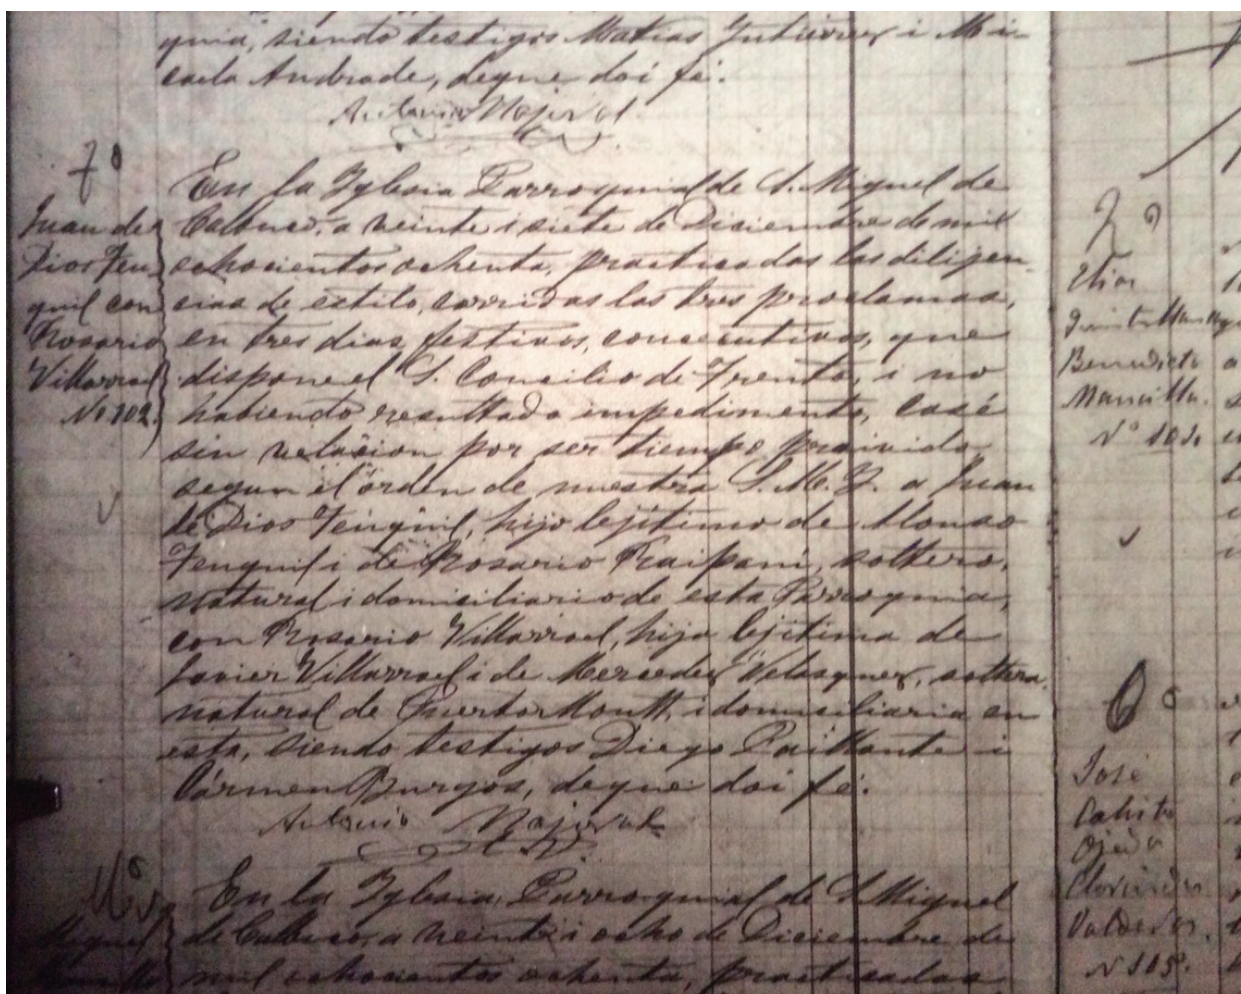 quia, siendo testigos Matias Gutierrez i Mi-
caela Andrade, deque doi fé.
Antonio Majoral
7º
Juan de
Dios Ten
quil con
Rosario
Villarroel
Nº 102.
En la Yglesia Parroquial de S. Miguel de
Calbuco, a veinte i siete de Diciembre de mil
ochocientos ochenta, practicadas las dilijen-
cias de estilo, corridas las tres proclamas,
en tres dias festivos, consecutivos, que
dispone el S. Concilio de Trento, i no
habiendo resultado impedimento, casé
sin velacion por ser tiempo proivido
segun el órden de nuestra S. M. Y. a Juan
de Dios Tenquil, hijo lejitimo de Alonso
Tenquil i de Rosario Raipani, soltero,
natural i domiciliario de esta Parroquia,
con Rosario Villarroel, hija lejitima de
Javier Villarroel i de Mercedes Velasquez, soltera
natural de Puerto Montt, i domiciliaria en
esta, siendo testigos Diego Paillante i
Cármen Burgos, deque doi fé.
Antonio Majoral
Miguel
En la Yglesia Parroquial de S. Miguel
de Calbuco, a veinte i ocho de Diciembre de
mil ochocientos ochenta, practicadas
Elias
Benedicta
Mancilla.
José
Cahito
Ojeda
Clorindes
Valdevez.
N 105.